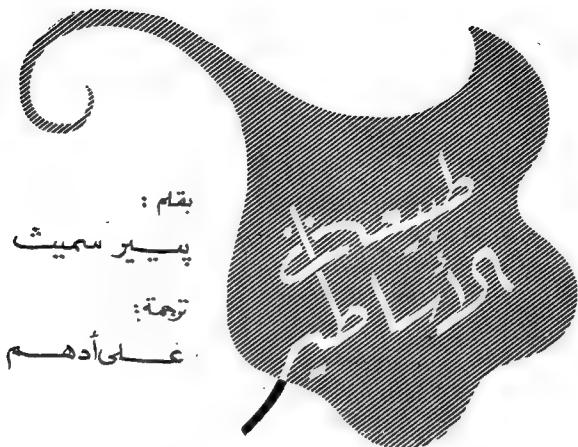 طبيعة
الأساطير
بقلم :
پييرسميث
ترجمة:
على أدهم